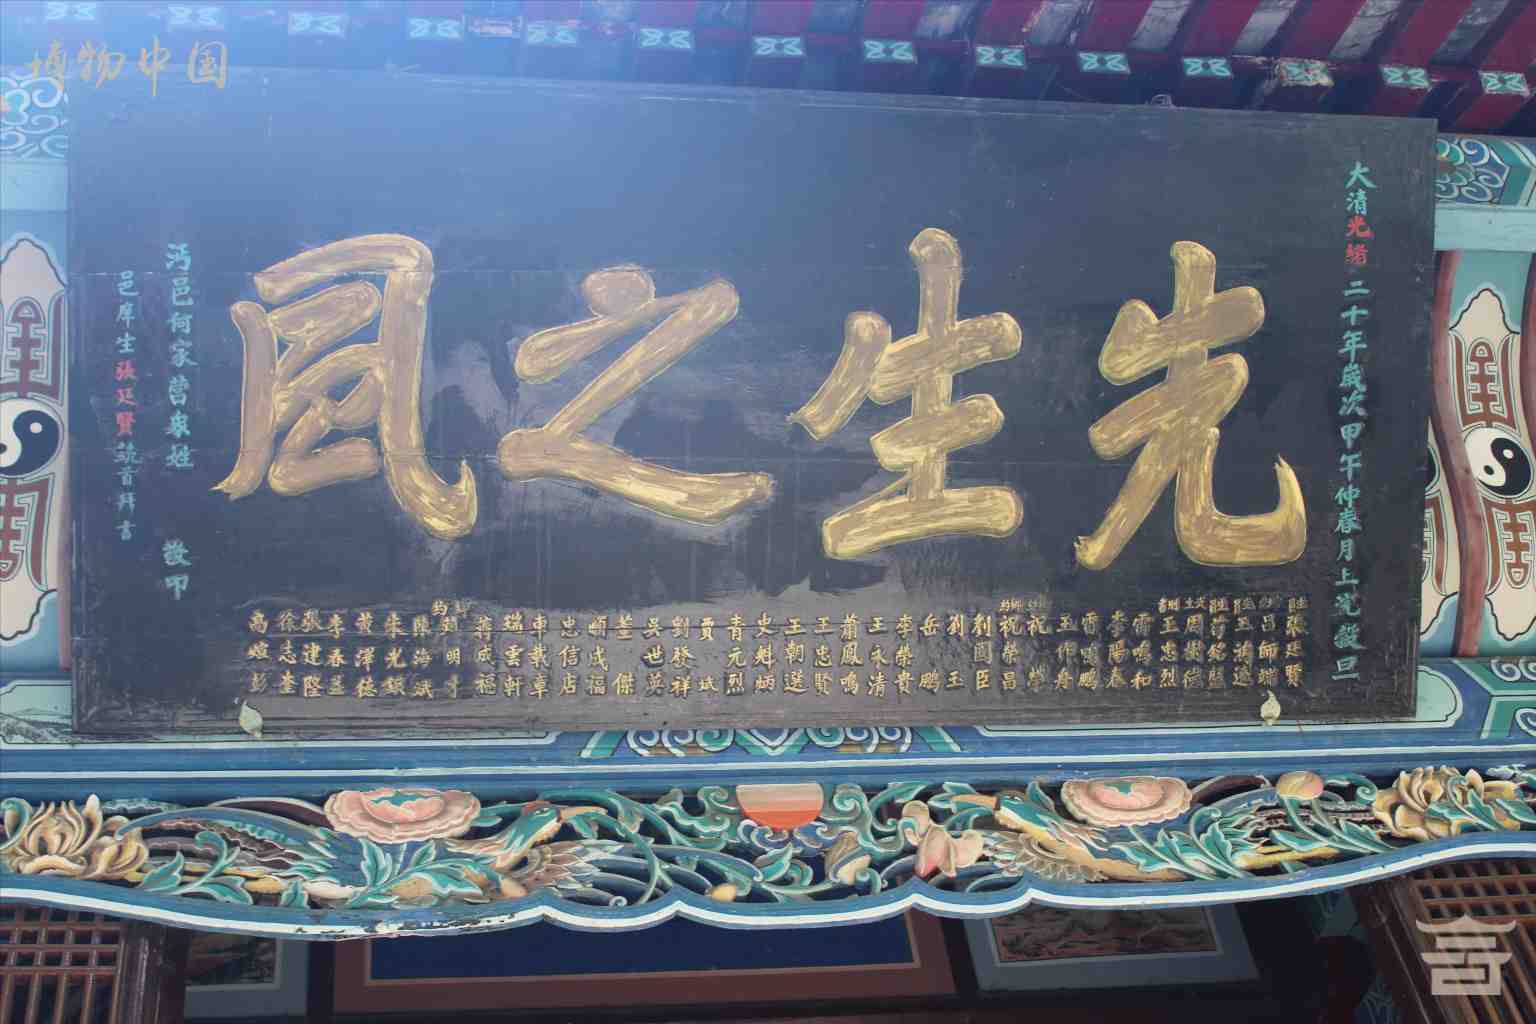 博物中国
大清光緒二十年歲次甲午仲春月上浣穀旦
先生之風
張廷賢
呂師端
王鴻遠
王忠烈
雷鳴和
李陽春
雷鳴鵬
王作舟
祝榮昌
劉國臣
劉玉
岳鵬
李榮貴
王永清
蕭鳳鳴
王忠賢
王朝選
史魁炳
青元烈
賈斌
劉發祥
吳世英
董傑
頓成福
忠信店
車載章
瑞雲軒
蔣成福
陳海斌
朱光銀
黃澤德
李春盛
張建隆
徐志奎
高煌彭
沔邑何家營衆姓 敬叩
邑庠生張廷賢毓首拜書